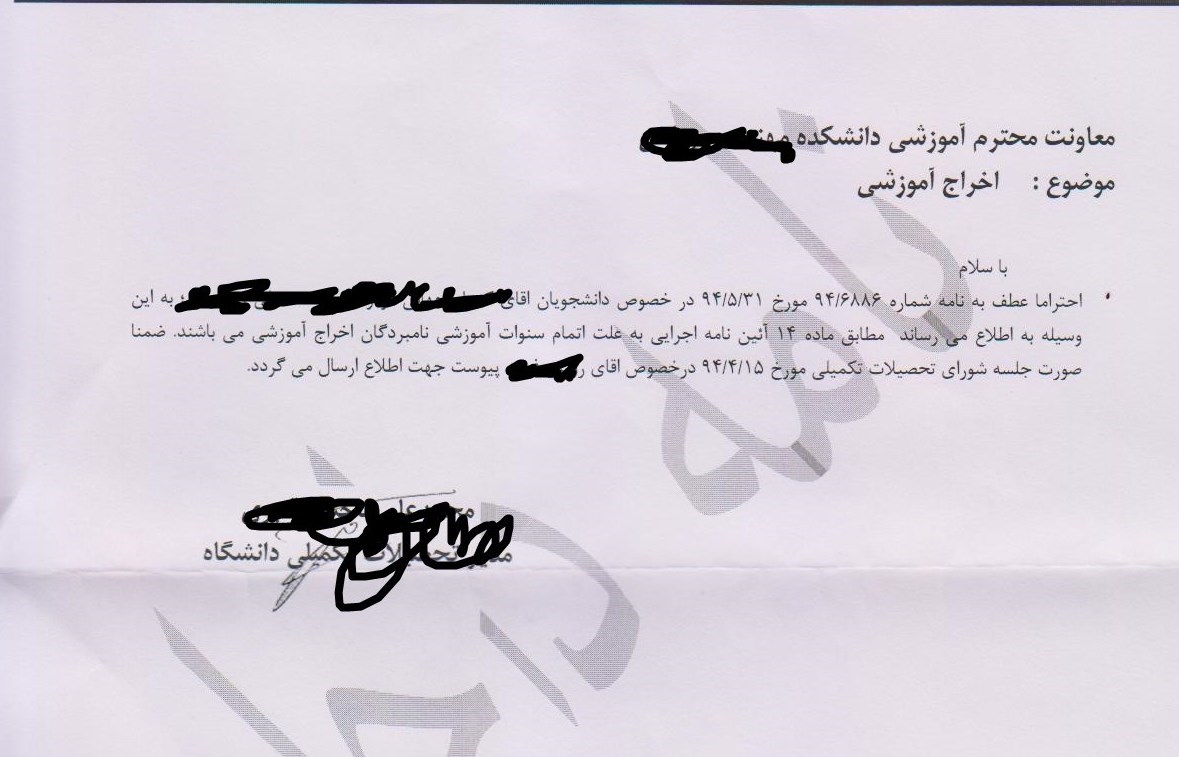 معاونت محترم آموزشی دانشکده
موضوع : اخراج آموزشی
با سلام
احتراما عطف به نامه شماره ۹۴/۶۸۸۶ مورخ ۹۴/۵/۳۱ در خصوص دانشجویان آقای به این
وسیله به اطلاع می رساند مطابق ماده ۱۴ آئین نامه اجرایی به علت اتمام سنوات آموزشی نامبردگان اخراج آموزشی می باشند. ضمنا
صورت جلسه شورای تحصیلات تکمیلی مورخ ۹۴/۴/۱۵ درخصوص اقای پیوست جهت اطلاع ارسال می گردد.
مدیر تحصیلات تکمیلی دانشگاه
نامه اداری